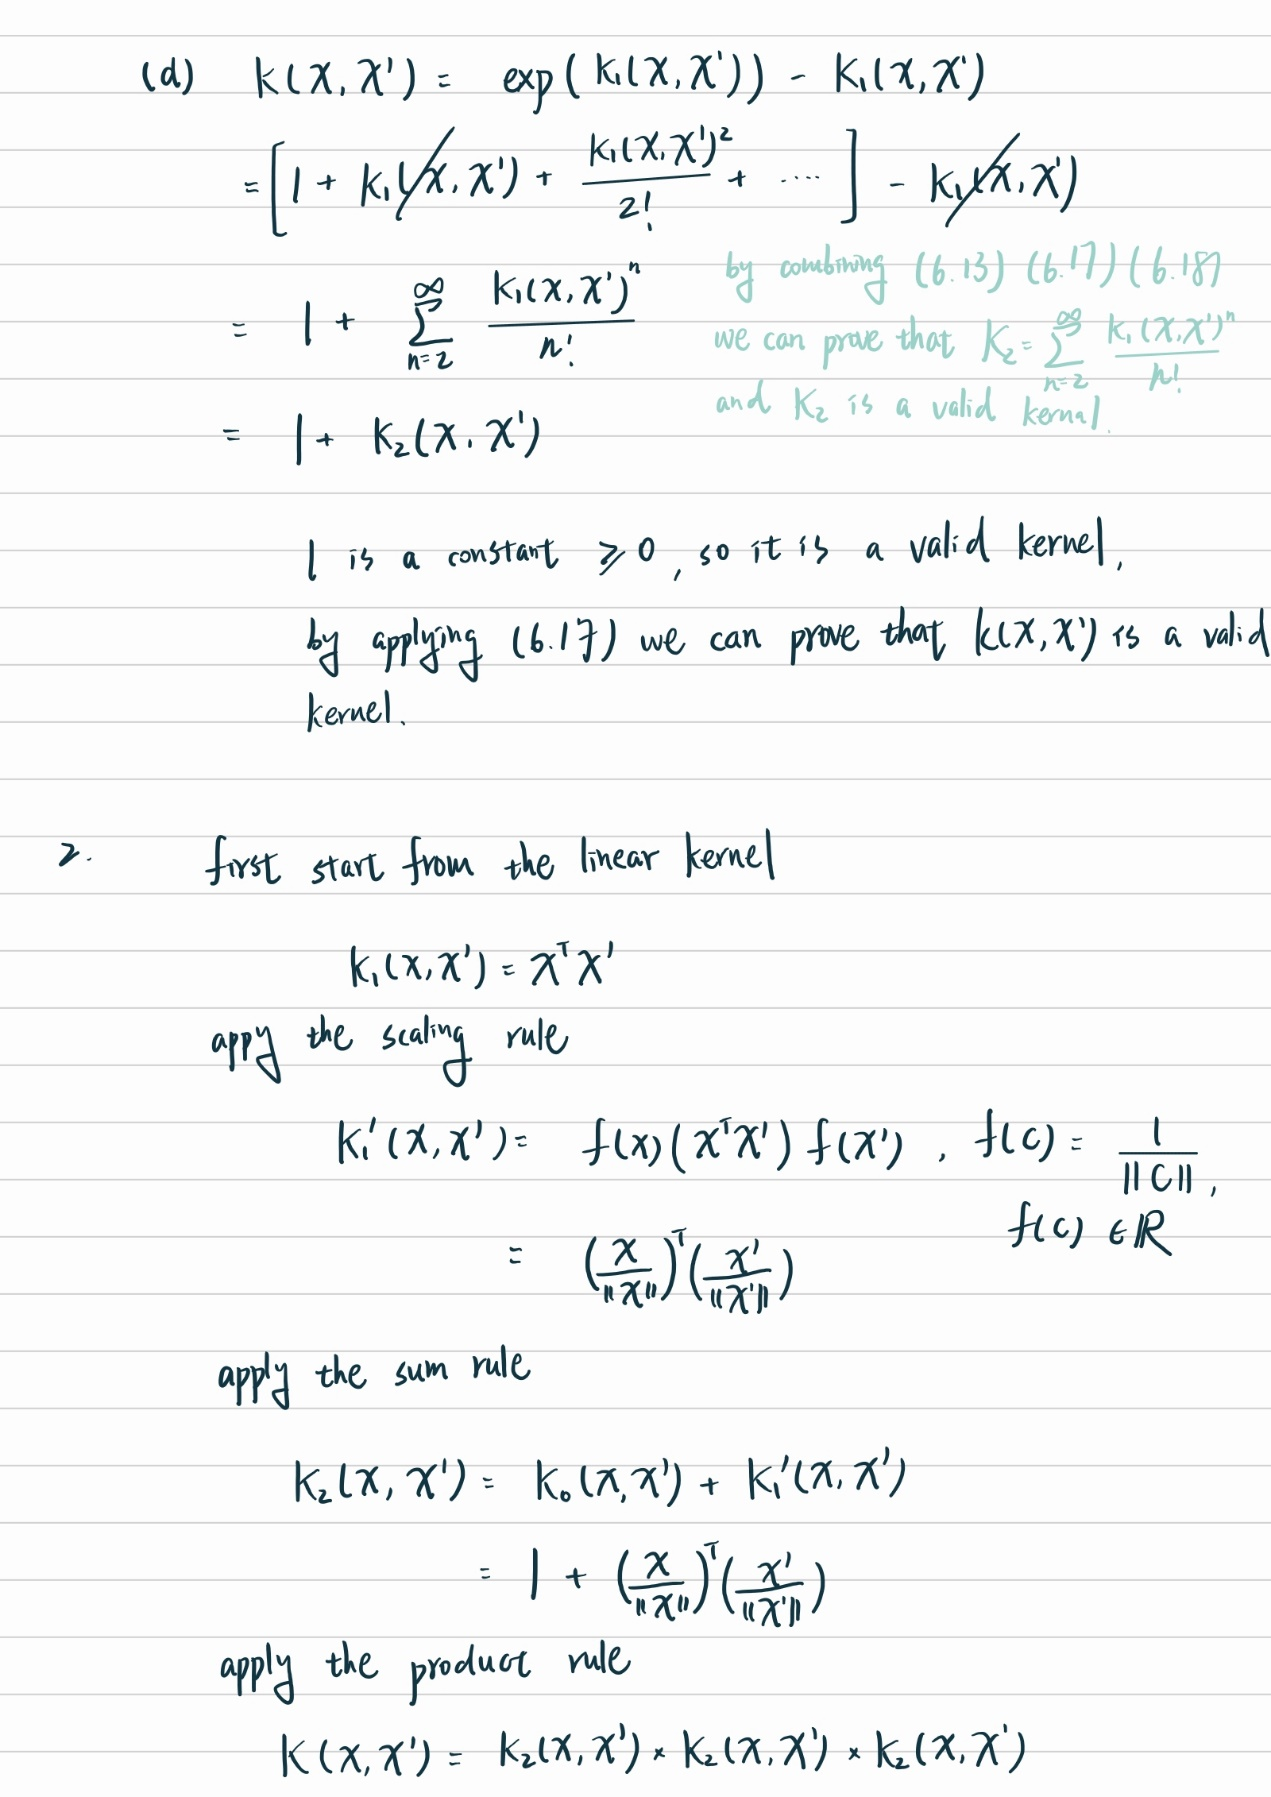 (d) k(x, x') = exp(k₁(x, x')) - k₁(x, x')
= [1 + k₁(x, x') + k₁(x, x')²/2! + ····] - k₁(x, x')
= 1 + ∑_{n=2}^{∞} k₁(x, x')ⁿ/n!
by combining (6.13) (6.17) (6.18)
we can prove that k₂ = ∑_{n=2}^{∞} k₁(x, x')ⁿ/n!
and k₂ is a valid kernel.
= 1 + k₂(x, x')
1 is a constant ⩾ 0, so it is a valid kernel,
by applying (6.17) we can prove that k(x, x') is a valid
kernel.
2. first start from the linear kernel
k₁(x, x') = xᵀx'
appy the scaling rule
k₁'(x, x') = f(x)(xᵀx')f(x'), f(c) = 1/||c||,
f(c) ∈ ℝ
= (x/||x||)ᵀ(x'/||x'||)
apply the sum rule
k₂(x, x') = k₀(x, x') + k₁'(x, x')
= 1 + (x/||x||)ᵀ(x'/||x'||)
apply the product rule
k(x, x') = k₂(x, x') × k₂(x, x') × k₂(x, x')